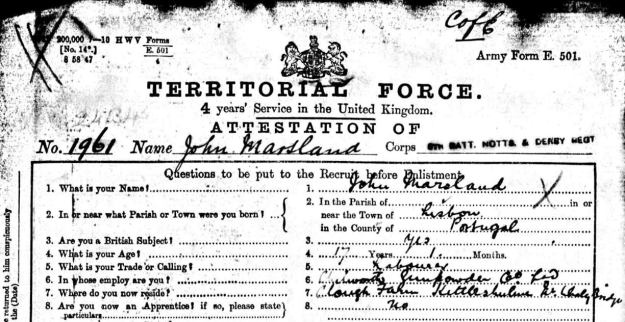 200,000 7—10 H W V Forms
[No. 14*.] E. 501
8 58 47 4
Coff
Army Form E. 501.
TERRITORIAL FORCE.
4 years' Service in the United Kingdom.
ATTESTATION OF
No. 1961 Name John Marsland Corps 6TH BATT. NOTTS & DERBY REGT
Questions to be put to the Recruit before Enlistment.
1. What is your Name? 1. John Marsland
2. In or near what Parish or Town were you born? 2. In the Parish of in or
near the Town of Lisbon
in the County of Portugal
3. Are you a British Subject? 3. Yes
4. What is your Age? 4. 17 Years 1 Months.
5. What is your Trade or Calling? 5. Labourer
6. In whose employ are you? 6. Chilworth Gunpowder Co Ltd
7. Where do you now reside? 7. Clough Farm Kettleshulme Nr Whaley Bridge
8. Are you now an Apprentice? if so, please state 8. No
particulars
e returned to him conspicuously
the (Date)